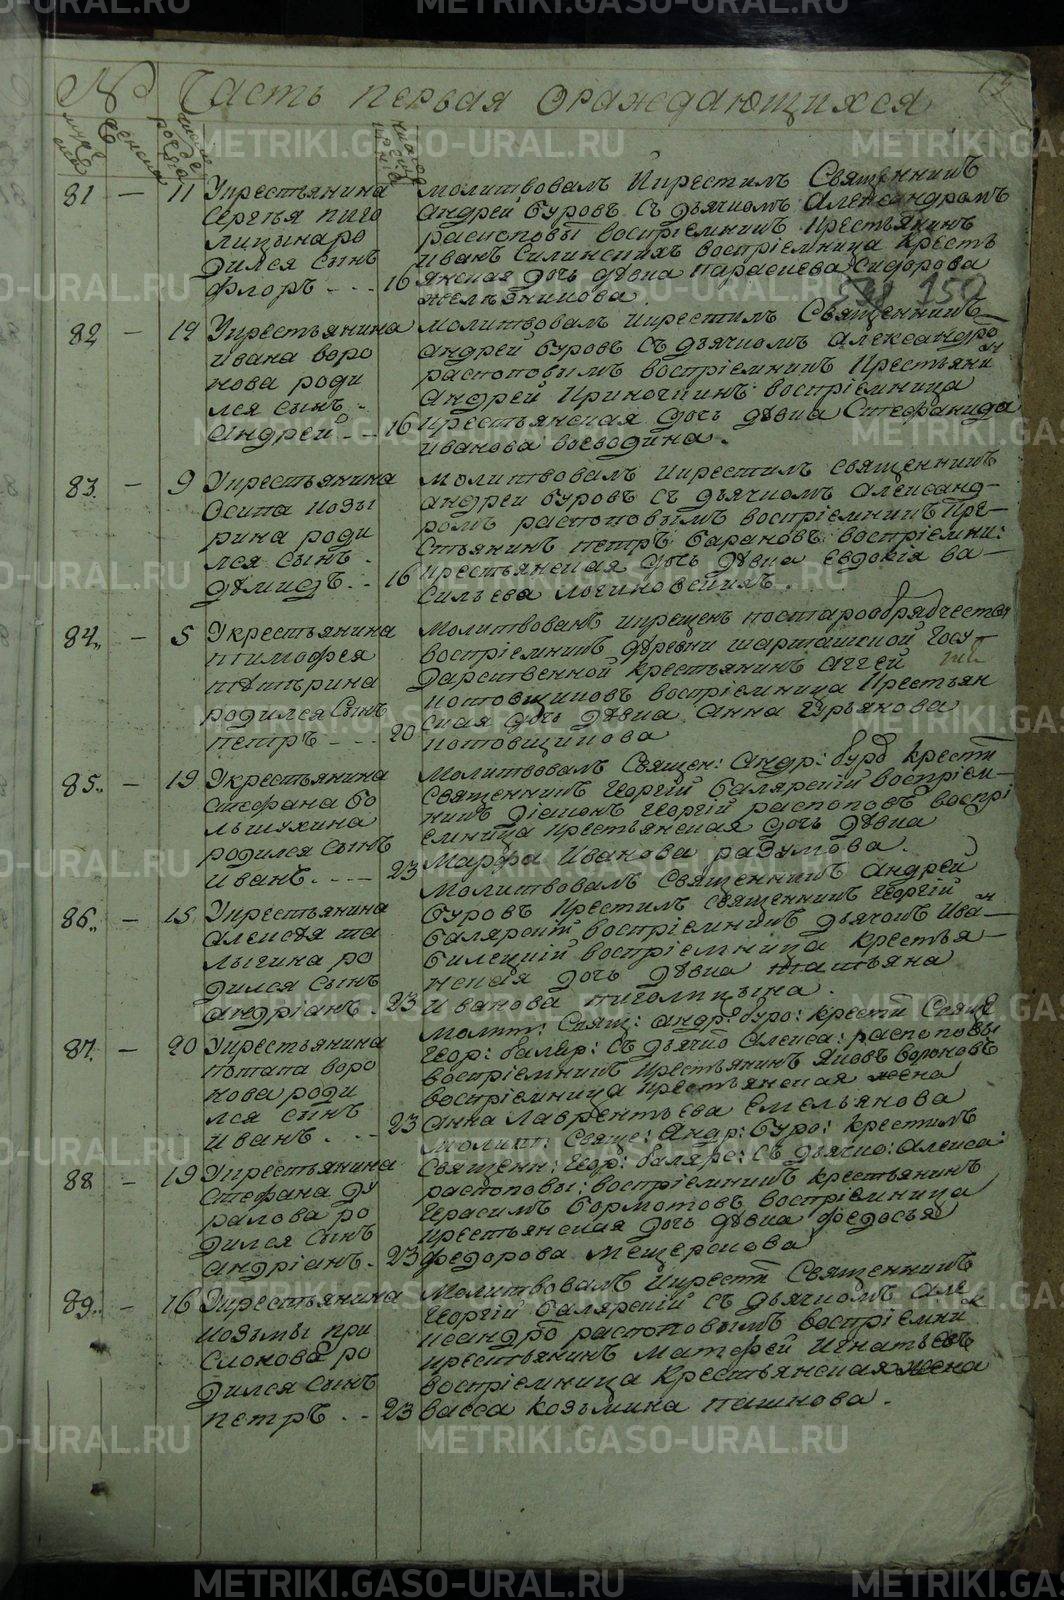 METRIKI.GASO-URAL.RU
№ Часть первая ораждающихся
13
муже
ска
женска
числ
рожде
81 — 11 Укрестьянина
Сергѣя пиго
лицына ро
дился сынъ
Флоръ - - - 16
молитвовалъ и крестилъ Священникъ
андрей буровъ съ дьячкомъ Александромъ
распоповы воспріемникъ крестьянинъ
иванъ Силинскихъ воспріемница крестъ
янская дочь дѣвка парасковья Сидорова
желѣзникова.
150
82 — 12 Укрестьянина
ивана воро
нова роди
лся сынъ -
андрей - - 16
молитвовалъ и крестилъ Священникъ
андрей буровъ съ дьячкомъ александро
распоповымъ воспріемникъ крестьяни
андрей воспріемница
крестьянская дочь дѣвка Стефанида
иванова воеводина.
83. — 9 Укрестьянина
Осипа козы
рина роди
лся сынъ -
демидъ - - 16
молитвовалъ и крестилъ священникъ
андрей буровъ съ дьячкомъ александ-
ромъ распоповымъ воспріемникъ кре-
стьянинъ петръ барановъ воспріемни:
крестьянская дочь дѣвка евдокія ва-
сильева логиновскихъ
84. — 5 Укрестьянина
тимофея
родился сынъ
петръ - - - 20
молитвованъ и крещенъ постарообрядчеству
воспріемникъ дѣревни шарташской госу
дарственной крестьянинъ аггей
потовщиковъ воспріемница крестьян
ская дочь дѣвка анна гурьянова
потовщикова
85. — 19 Укрестьянина
стефана бо
льшухина
родился сынъ
иванъ - - - 23
молитвовалъ Священ: андр: буро крести
Священникъ георгій балярскій воспріем-
никъ діаконъ георгій распоповъ воспрі
емница крестьянская дочь дѣвка
Марфа иванова разумова.
86. — 15 Укрестьянина
алексѣя та
лыгина ро
дился сынъ
андріанъ. 23
молитвовалъ Священникъ андрей
буровъ крестилъ священникъ георгій
балярскій воспріемникъ дьячокъ иван
билецкій воспріемница крестья-
нская дочь дѣвка татьяна
иванова пиголицына.
87. — 20 Укрестьянина
потапа воро
нова роди
лся сынъ
иванъ. - - 23
молит: Свящ: андр: буро: крести Свящ
геор: баляр: съ дьячко алекса: распоповы
воспріемникъ крестьянинъ яковъ вороновъ
воспріемница крестьянская жена
анна лаврентьева емельянова
88 — 19 Укрестьянина
стефана ду
ралова ро
дился сынъ
андріанъ. 23
молит: Свяще: андр: буро: крестилъ
Священн: геор: балярс: съ дьячко: алекса:
распоповы: воспріемникъ крестьянинъ
герасимъ бормотовъ воспріемница
крестьянская дочь дѣвка федосья
федорова мещерскова
89. — 16 Укрестьянина
козьмы при
слонова ро
дился сынъ
петръ - - 23
молитвовалъ и крести Священникъ
георгій балярскій съ дьячкомъ але
ксандро распоповымъ воспріемник
крестьянинъ матфей игнатьевъ
воспріемница крестьянская жена
васса козьмина пашкова.